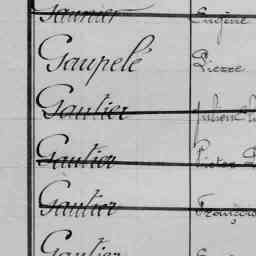 Gaunier Eugène
Gaupelé Pierre
Gautier
Gautier
Gautier François
Gautier